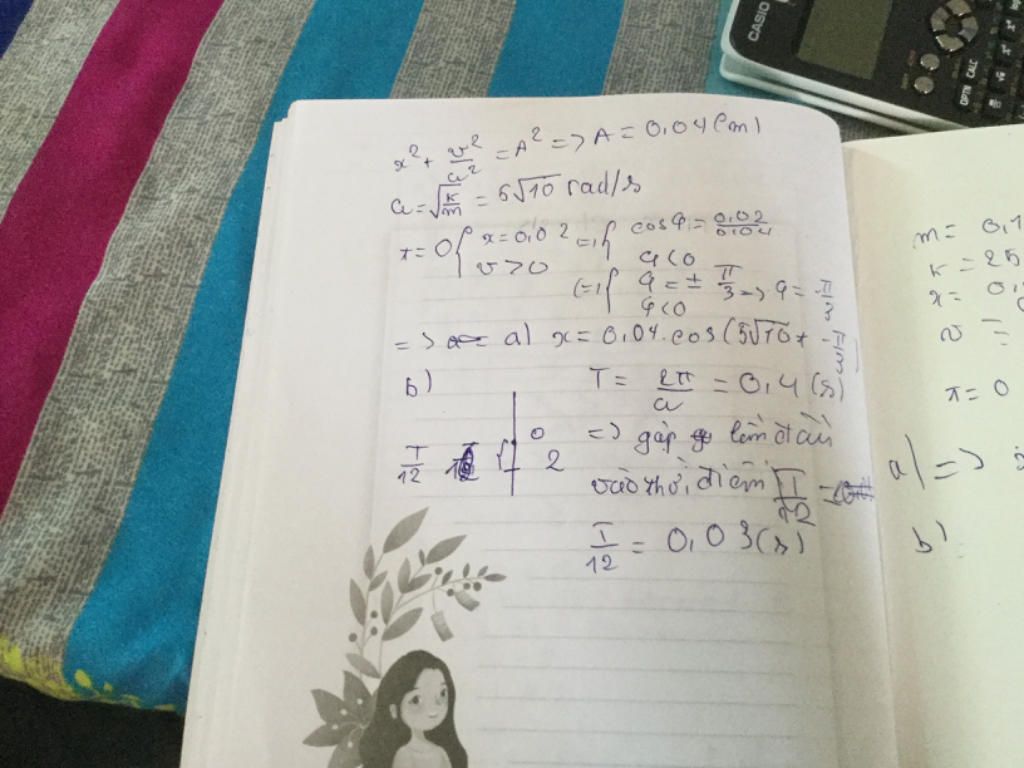 CASIO
OPTN
CALC
x² + v²/ω² = A² => A = 0,04 (m)
ω = √(k/m) = 5√10 rad/s
t = 0 { x = 0,02 v > 0 <=> { cos φ = 0,02/0,04 φ < 0
<=> { φ = ± π/3 φ < 0 => φ = -π/3
=> a) x = 0,04.cos(5√10t - π/3)
b) T = 2π/ω = 0,4 (s)
T/12 0 2
=> gặp lần đầu
vào thời điểm T/12
T/12 = 0,03 (s)
m = 0,1
k = 25
x = 0,
v =
t = 0
a) =>
b)